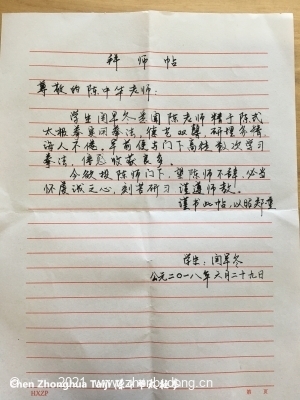 拜师帖
尊敬的陈中华老师：
学生闫早冬素闻陈老师精于陈式
太极拳实用拳法，德艺双馨，研理务博，
诲人不倦，早前便去门下高徒数次学习
拳法，倍感收获良多。
今欲投陈师门下，望陈师不辞，必当
怀虔诚之心，刻苦研习，谨遵师教。
谨书此帖，以昭郑重
学生：闫早冬
公元二〇一八年六月二十九日
© 2021 www.zhonghuadong.cn
Chen Zhonghua Taiji
HXZP
第 页